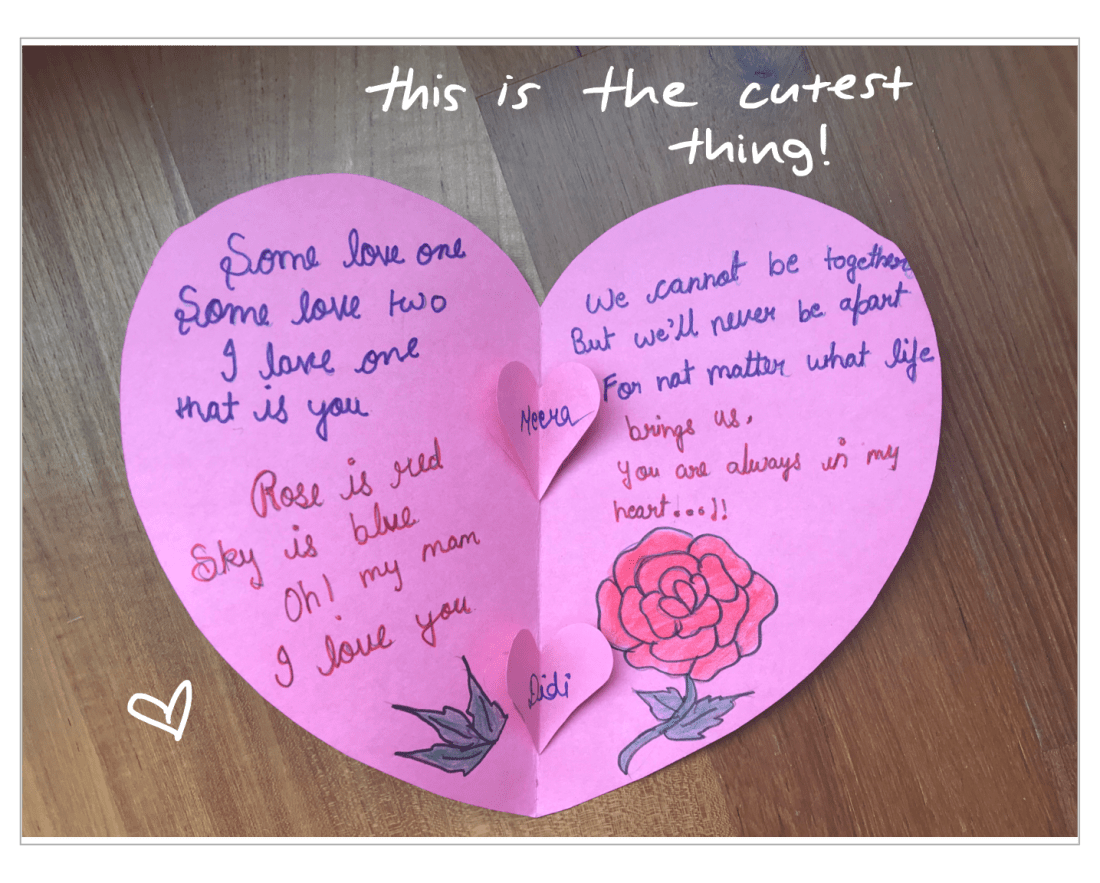 this is the cutest
thing!
Some love one
Some love two
I love one
that is you
Rose is red
Sky is blue
Oh! my mam
I love you
Meera
Didi
We cannot be together
But we'll never be apart
For nat matter what life
brings us,
You are always in my
heart...!!